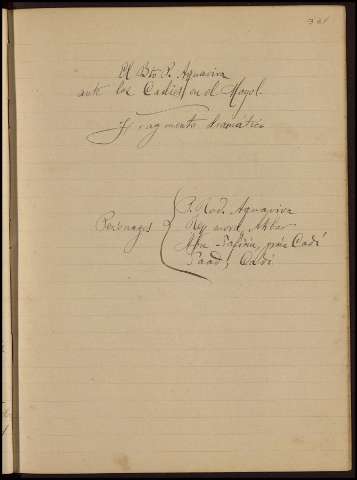 El Bto P. Aquaviva
ante los Cadíes en el Mogol
Fragmento dramático
Personages
P. Rod. Aquaviva
Rey mogol, Akbar
Abu
Saad, Cadí